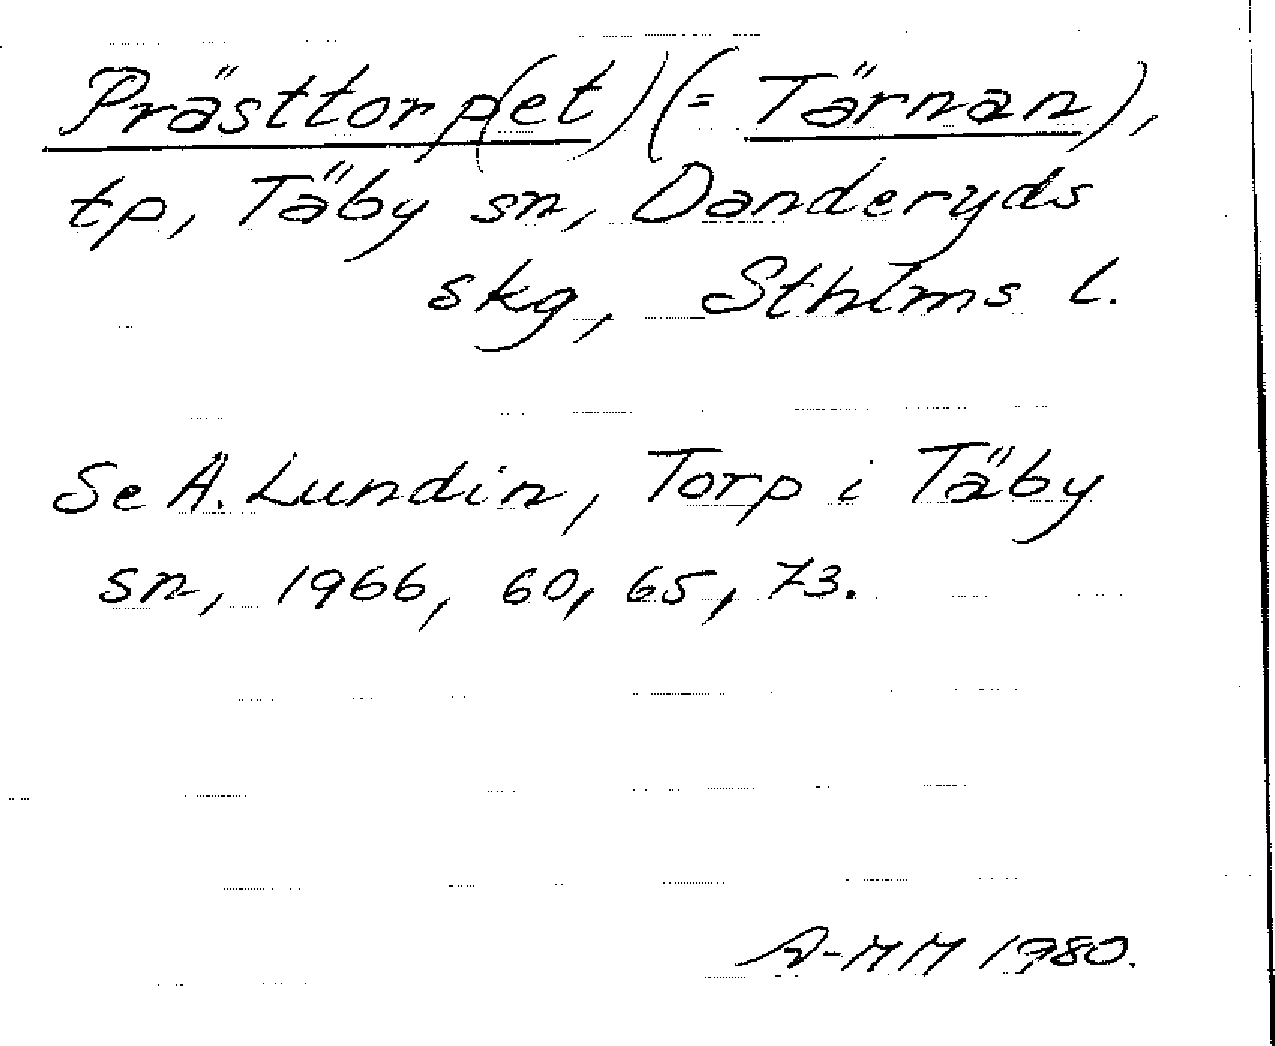 Prästtorp(et) (= Tärnan),
tp, Täby sn, Danderyds
skg, Sthlms l.
Se A. Lundin, Torp i Täby
sn, 1966, 60, 65, 73.
A-MM 1980.